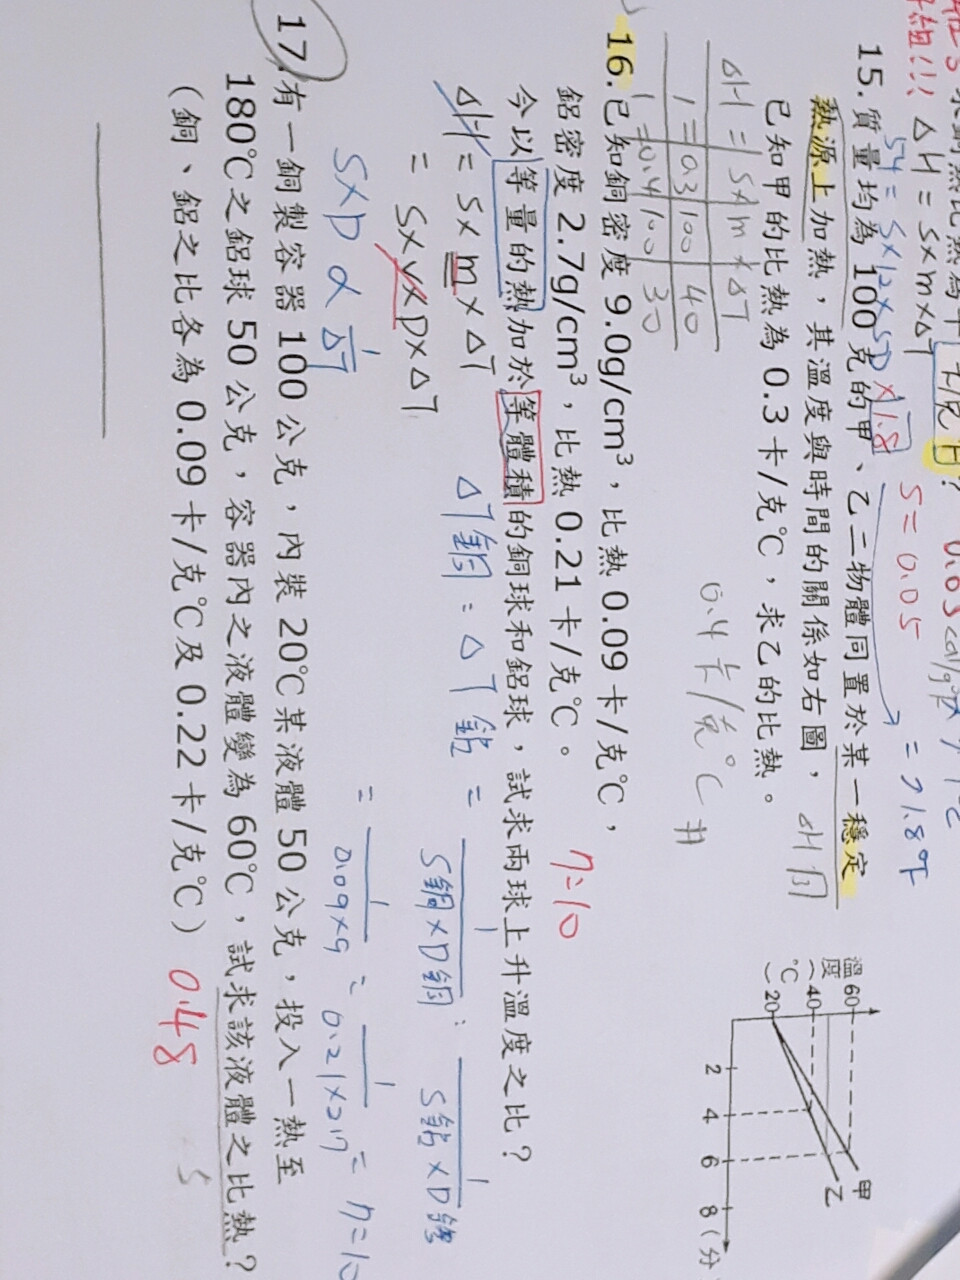 ΔH = S×m×ΔT
54 = S×12×50×1.8
S = 0.05
= 71.8°F
15. 質量均為 100 克的甲、乙二物體同置於某一穩定
熱源上加熱，其溫度與時間的關係如右圖，
已知甲的比熱為 0.3 卡/克℃，求乙的比熱。
ΔH同
0.4 卡/克℃ #
ΔH = S×m×ΔT
1 = 0.3 100 40
1 = 0.4 100 30
溫度(℃)
60
40
20
2 4 6 8 (分
甲
乙
16. 已知銅密度 9.0g/cm³，比熱 0.09 卡/克℃，
鋁密度 2.7g/cm³，比熱 0.21 卡/克℃。
7:10
今以等量的熱加於等體積的銅球和鋁球，試求兩球上升溫度之比？
ΔH = S×m×ΔT
= S×V×D×ΔT
S×D ∝ 1/ΔT
ΔT銅 : ΔT鋁 = 1/S銅×D銅 : 1/S鋁×D鋁
= 1/0.09×9 : 1/0.21×2.7 = 7:10
17. 有一銅製容器 100 公克，內裝 20℃某液體 50 公克，投入一熱至
180℃之鋁球 50 公克，容器內之液體變為 60℃，試求該液體之比熱？
(銅、鋁之比各為 0.09 卡/克℃及 0.22 卡/克℃) 0.48